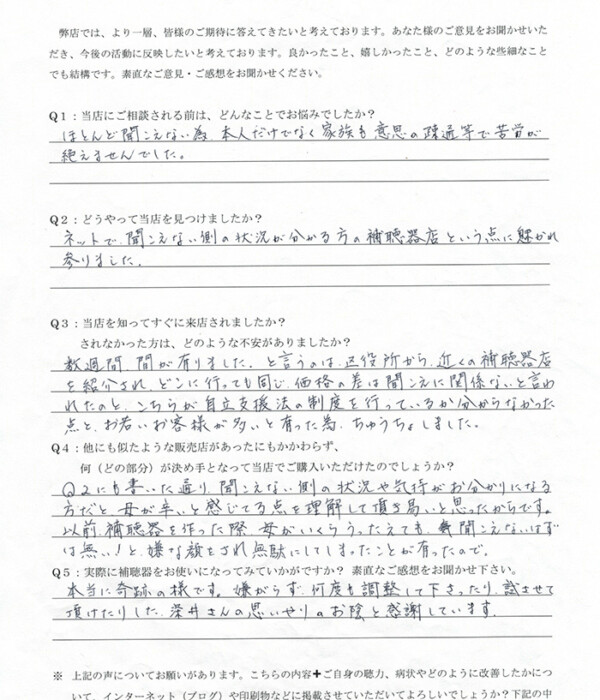 弊店では、より一層、皆様のご期待に答えてきたいと考えております。あなた様のご意見をお聞かせいた
だき、今後の活動に反映したいと考えております。良かったこと、嬉しかったこと、どのような些細なこと
でも結構です。素直なご意見・ご感想をお聞かせください。
Q1：当店にご相談される前は、どんなことでお悩みでしたか？
ほとんど聞こえない為、本人だけでなく家族も意思の疎通等で苦労が
絶えませんでした。
Q2：どうやって当店を見つけましたか？
ネットで、聞こえない側の状況が分かる方の補聴器店という点に魅かれ
参りました。
Q3：当店を知ってすぐに来店されましたか？
されなかった方は、どのような不安がありましたか？
数週間、間が有りました。と言うのは、区役所から、近くの補聴器店
を紹介され、どこに行っても同じ、価格の差は聞こえに関係ないと言わ
れたのと、こちらが自立支援法の制度を行っているか分からなかった
点と、お若いお客様が多いと有った為、ちゅうちょしました。
Q4：他にも似たような販売店があったにもかかわらず、
何（どの部分）が決め手となって当店でご購入いただけたのでしょうか？
Q2にも書いた通り、聞こえない側の状況や気持がお分かりになる
方だと、母が辛いと感じてる点を理解して頂き易いと思ったからです。
以前、補聴器を作った際、母がいくらうったえても、聞こえないはず
は無い！と、嫌な顔をされ無駄にしてしまったことが有ったので。
Q5：実際に補聴器をお使いになってみていかがですか？ 素直なご感想をお聞かせ下さい。
本当に奇跡の様です。嫌がらず、何度も調整して下さったり、試させて
頂けたりした、深井さんの思いやりのお陰と感謝しています。
※ 上記の声についてお願いがあります。こちらの内容＋ご自身の聴力、病状やどのように改善したかにつ
いて、インターネット（ブログ）や印刷物などに掲載させていただいてよろしいでしょうか？下記の中